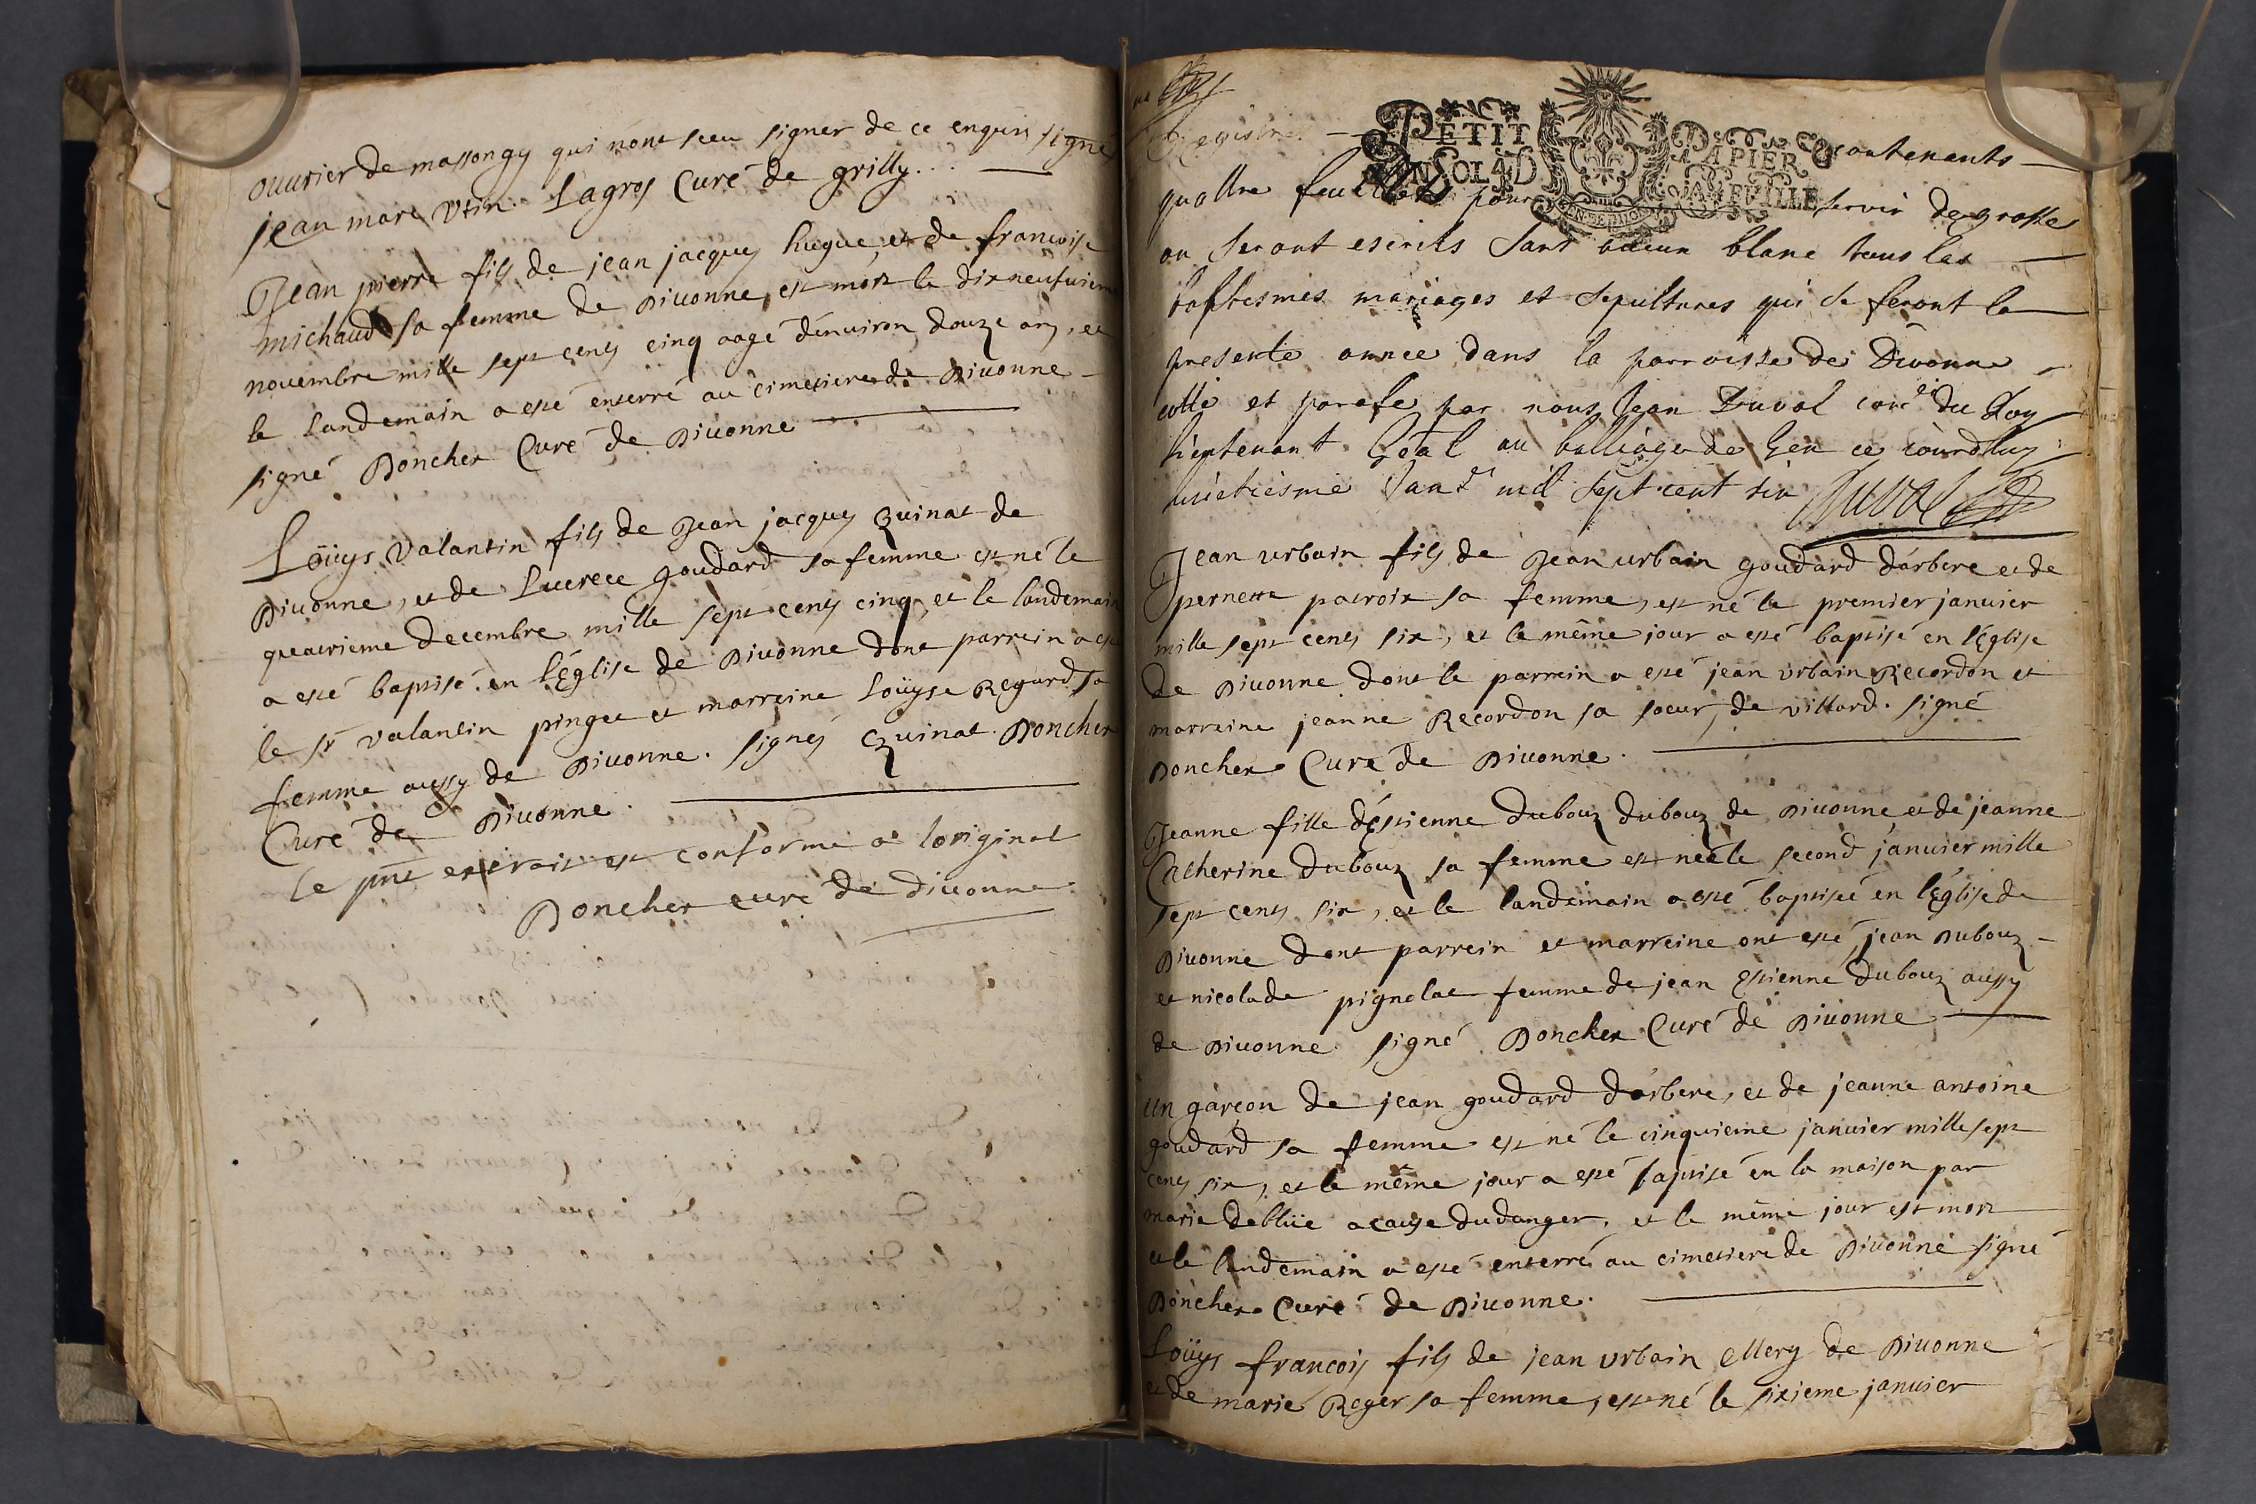 ouurier de massongy qui n'ont sceu signer de ce enquis signé
jean marc Vtin. Lagros Curé de grilly...
Jean pierre fils de jean jacques hugue, et de francoise
michaud sa femme de Diuonne, est mort le dixneufuieme
nouembre mille sept cents cinq aagé d'enuiron douze ans, et
le landemain a esté enterré au cimetiere de Diuonne
signé Doncher Curé de Diuonne
Loüys Valantin fils de Jean jacques Quinat de
Diuonne, et de Lucrece goudard sa femme est né le
quatrieme decembre mille sept cents cinq, et le landemain
a esté baptisé en l'Église de Diuonne dont parrein a esté
le sr Valantin pinget et marreine Loüyse Regard sa
femme aussy de Diuonne. signés Quinat. Doncher
Curé de Diuonne.
le pnt extrait est conforme a loriginal
Doncher curé de diuonne
Registre
PETIT PAPIER
UN SOL 4 D LA FEUILLE
contenants
quattre feuillets pour servir de grosse
ou seront escrits sans aucun blanc tous les
baptesmes mariages et sepultures qui se feront la
presente annee dans la parroisse de Divonne
cotté et parafé par nous Jean Duval conr du Roy
lieutenant Gnal au balliage de Gex ce iourdhuy
huictiesme Janr mil sept cent six Duval
Jean urbain fils de Jean urbain goudard d'arbere et de
pernette patroix sa femme, est né le premier januier
mille sept cents six, et le même jour a esté baptisé en l'Église
de Diuonne dont le parrein a esté jean Vrbain Recordon et
marreine jeanne Recordon sa soeur, de villard. signé
Doncher Curé de Diuonne.
Jeanne fille d'Estienne dubouz dubouz de Diuonne et de jeanne
Catherine dubouz sa femme est neé le second januier mille
sept cents six, et le landemain a esté baptiseé en l'Église de
Diuonne dont parrein et marreine ont esté, jean Dubouz
et nicolade pignolat femme de jean Estienne dubouz aussy
de Diuonne signé Doncher Curé de Diuonne
Un garçon de jean goudard d'arbere, et de jeanne antoine
goudard sa femme est né le cinquieme januier mille sept
cents six, et le même jour a esté baptisé en la maison par
marie deblüe a cause du danger, et le même jour est mort
et le landemain a esté enterré au cimetiere de Diuonne signé
Doncher Curé de Diuonne.
Loüys francois fils de jean vrbain Mery de Diuonne
et de marie Reger sa femme, est né le sixieme januier